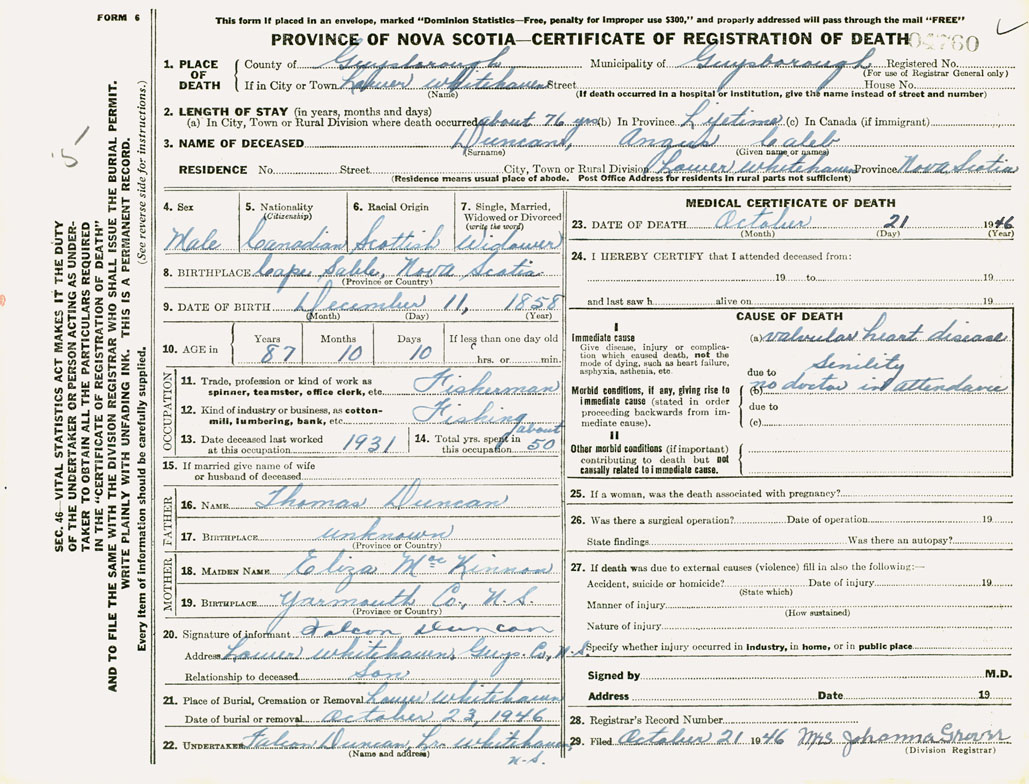 FORM 6
This form if placed in an envelope, marked "Dominion Statistics—Free, penalty for improper use $300," and properly addressed will pass through the mail "FREE"
PROVINCE OF NOVA SCOTIA—CERTIFICATE OF REGISTRATION OF DEATH
1. PLACE OF DEATH
County of Guysborough Municipality of Guysborough Registered No.
(For use of Registrar General only)
If in City or Town Lower Whitehaven Street House No.
(Name) (If death occurred in a hospital or institution, give the name instead of street and number)
2. LENGTH OF STAY (in years, months and days)
(a) In City, Town or Rural Division where death occurred about 76 yrs (b) In Province Lifetime (c) In Canada (if immigrant)
3. NAME OF DECEASED Duncan, Angus Caleb
(Surname) (Given name or names)
RESIDENCE No. Street City, Town or Rural Division Lower Whitehaven Province Nova Scotia
(Residence means usual place of abode. Post Office Address for residents in rural parts not sufficient)
4. Sex 5. Nationality (Citizenship) 6. Racial Origin 7. Single, Married, Widowed or Divorced (write the word)
Male Canadian Scottish Widower
8. BIRTHPLACE Cape Sable, Nova Scotia
(Province or Country)
9. DATE OF BIRTH December 11, 1858
(Month) (Day) (Year)
10. AGE in Years Months Days If less than one day old
87 10 10 hrs. or min.
OCCUPATION
11. Trade, profession or kind of work as spinner, teamster, office clerk, etc. Fisherman
12. Kind of industry or business, as cotton-mill, lumbering, bank, etc. Fishing
13. Date deceased last worked at this occupation 1931 14. Total yrs. spent in this occupation about 50
15. If married give name of wife or husband of deceased
FATHER
16. NAME Thomas Duncan
17. BIRTHPLACE unknown
(Province or Country)
MOTHER
18. MAIDEN NAME Eliza MacKinnon
19. BIRTHPLACE Yarmouth Co., N.S.
(Province or Country)
20. Signature of informant Falcon Duncan
Address Lower Whitehaven, Guys. Co., N.S.
Relationship to deceased Son
21. Place of Burial, Cremation or Removal Lower Whitehaven
Date of burial or removal October 23, 1946
22. UNDERTAKER Falcon Duncan, Lr. Whitehaven,
(Name and address) N.S.
MEDICAL CERTIFICATE OF DEATH
23. DATE OF DEATH October 21 1946
(Month) (Day) (Year)
24. I HEREBY CERTIFY that I attended deceased from:
19 to 19
and last saw h alive on 19
CAUSE OF DEATH
I
Immediate cause (a) valvular heart disease
Give disease, injury or complication which caused death, not the mode of dying, such as heart failure, asphyxia, asthenia, etc.
due to Senility
Morbid conditions, if any, giving rise to immediate cause (stated in order proceeding backwards from immediate cause).
(b) no doctor in attendance
due to
(c)
II
Other morbid conditions (if important) contributing to death but not causally related to immediate cause.
25. If a woman, was the death associated with pregnancy?
26. Was there a surgical operation? Date of operation 19
State findings Was there an autopsy?
27. If death was due to external causes (violence) fill in also the following:—
Accident, suicide or homicide? Date of injury 19
(State which)
Manner of injury
(How sustained)
Nature of injury
Specify whether injury occurred in industry, in home, or in public place
Signed by M.D.
Address Date 19
28. Registrar's Record Number
29. Filed October 21 1946 Mrs Johanna Grover
(Division Registrar)
SEC. 46—VITAL STATISTICS ACT MAKES IT THE DUTY
OF THE UNDERTAKER OR PERSON ACTING AS UNDER-
TAKER TO OBTAIN ALL THE PARTICULARS REQUIRED
IN THE "CERTIFICATE OF REGISTRATION OF DEATH"
AND TO FILE THE SAME WITH THE DIVISION REGISTRAR WHO SHALL ISSUE THE BURIAL PERMIT.
WRITE PLAINLY WITH UNFADING INK. THIS IS A PERMANENT RECORD.
Every item of information should be carefully supplied. (See reverse side for instructions.)